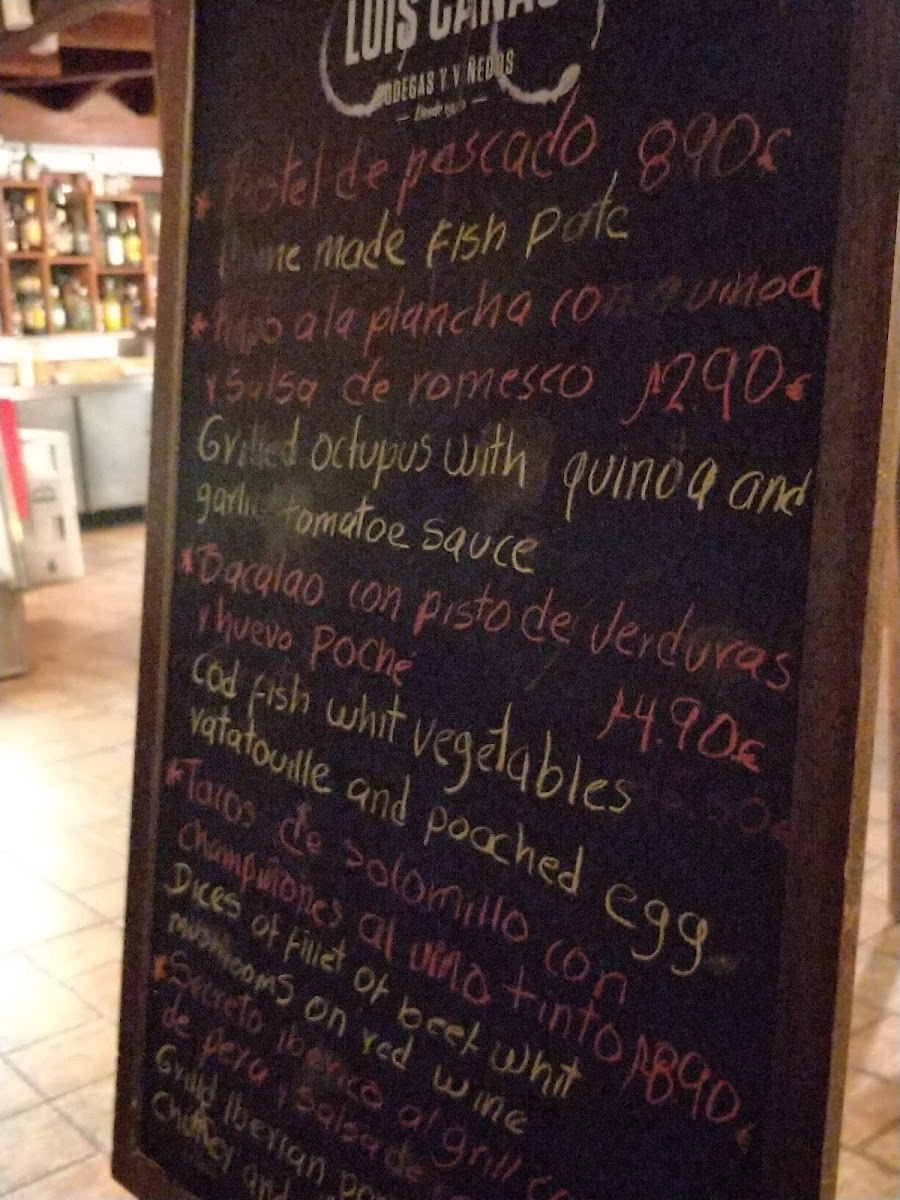 LUIS CAÑAS
BODEGAS Y VIÑEDOS
de pescado 8.90€
made Fish Pate
a la plancha con quinoa
y Salsa de romesco 12.90€
Grilled octupus with quinoa and
garlic tomatoe sauce
*Bacalao con pisto de verduras
y huevo Poché 14.90€
cod fish whit vegetables
ratatouille and poached egg
*Tacos de solomillo con
Champiñones al vino tinto 18.90€
Dices of fillet of beef whit
mushrooms on red wine
*Secreto iberico al grill
de pera y Salsa de
Grilld Iberian
Chutney and